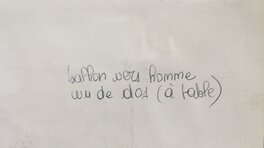 ballon vers homme
vu de dos (à table)